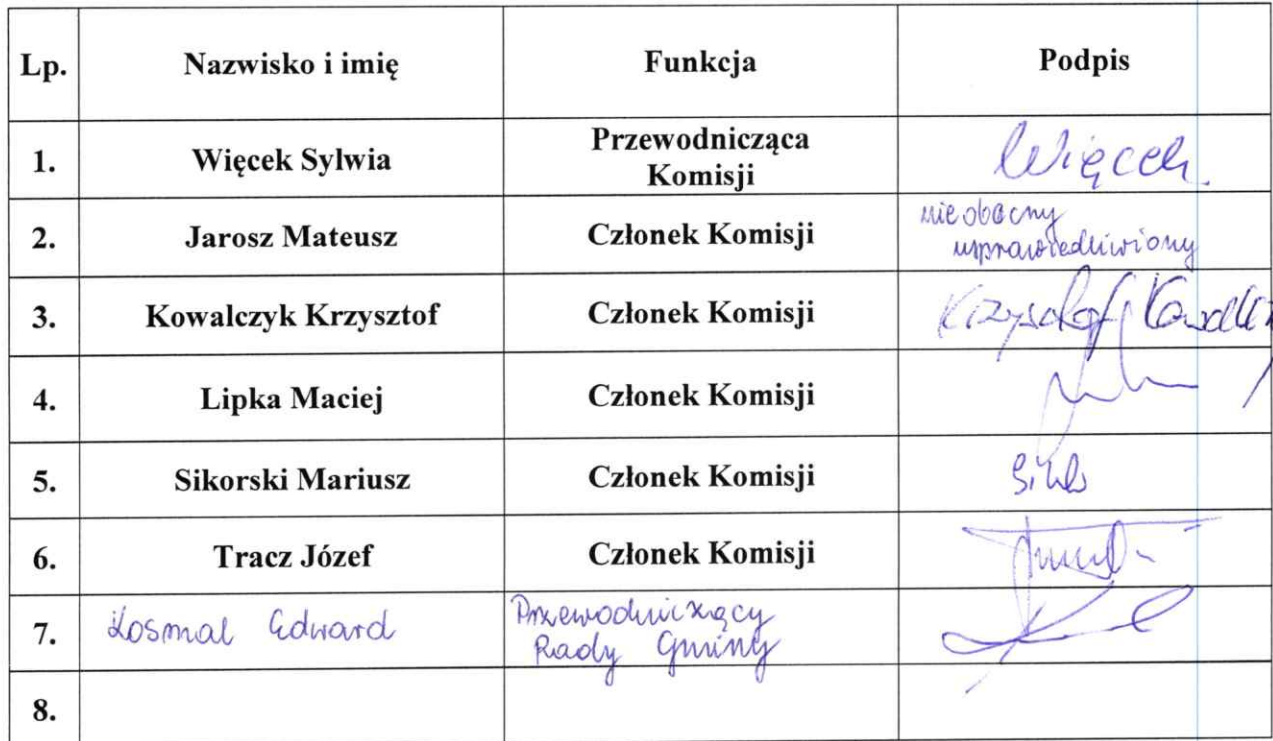 Lp. Nazwisko i imię Funkcja Podpis
1. Więcek Sylwia Przewodnicząca Komisji Więcek
2. Jarosz Mateusz Członek Komisji nieobecny
usprawiedliwiony
3. Kowalczyk Krzysztof Członek Komisji Krzysztof
4. Lipka Maciej Członek Komisji
5. Sikorski Mariusz Członek Komisji
6. Tracz Józef Członek Komisji
7. Kosmal Edward Przewodniczący
Rady Gminy
8.